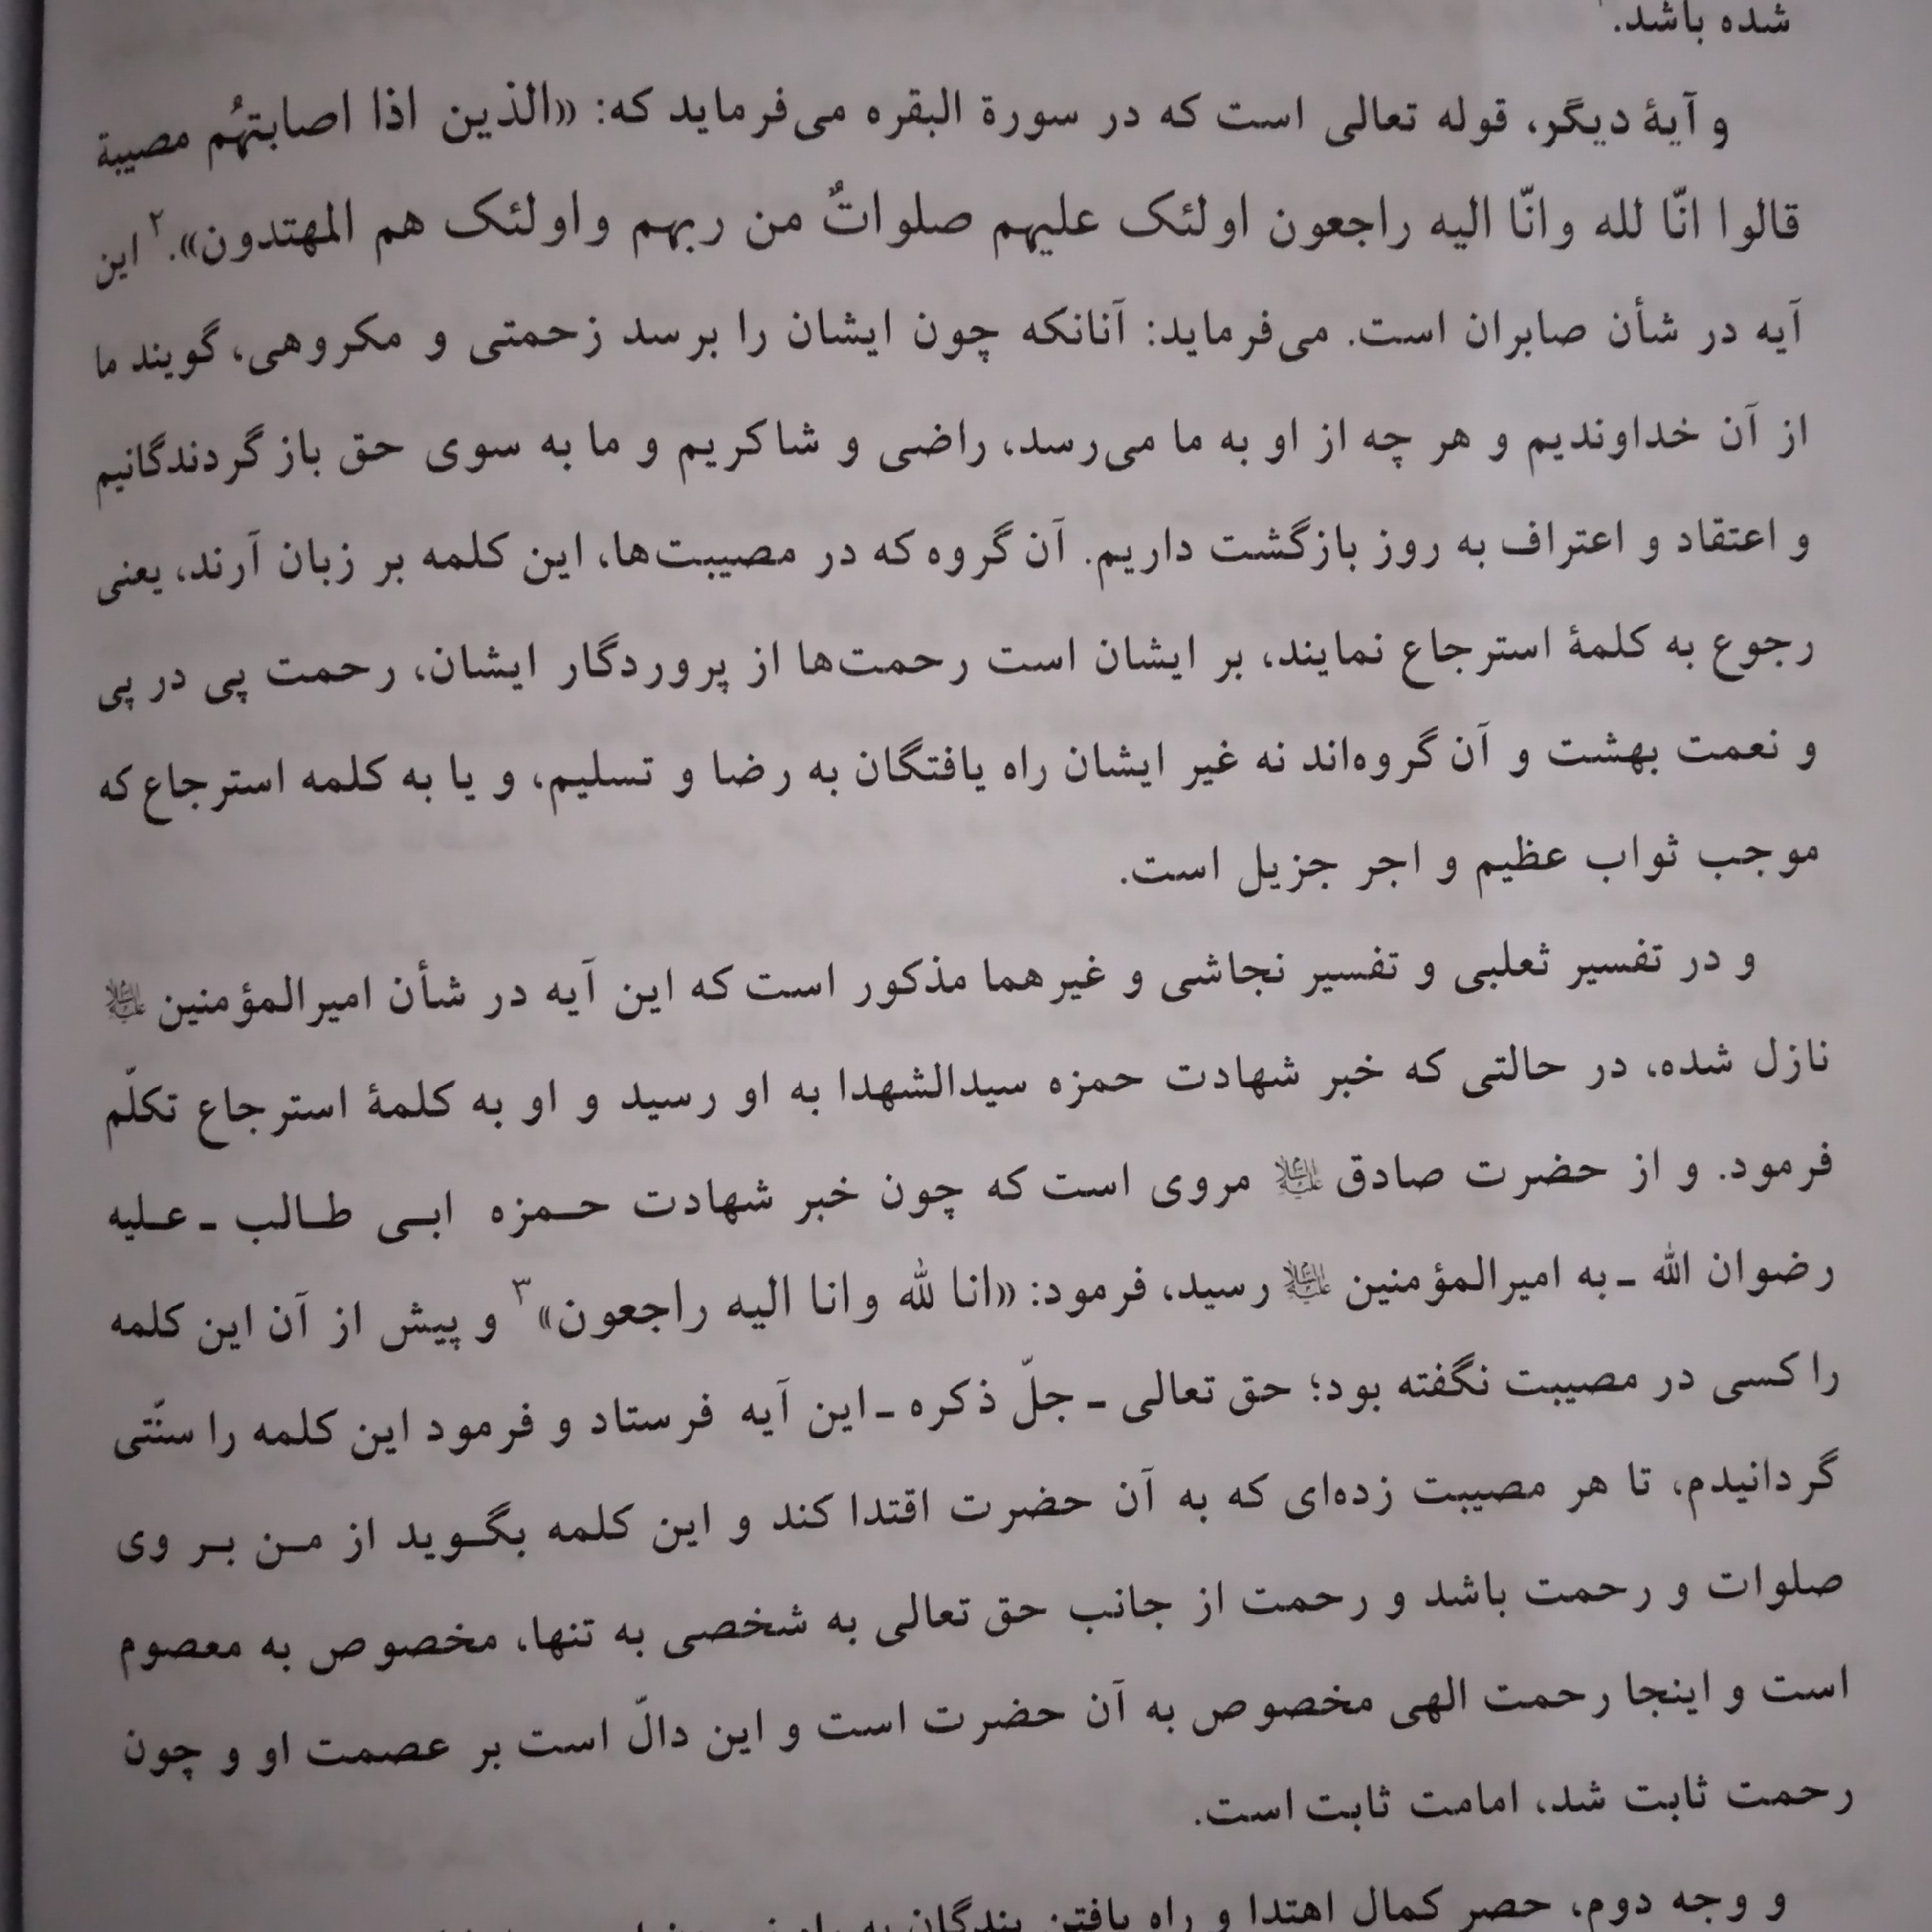 شده باشد.
و آیهٔ دیگر، قوله تعالی است که در سورة البقره می‌فرماید که: «الذین اذا اصابتهُم مصیبة
قالوا انّا لله وانّا الیه راجعون اولئک علیهم صلواتٌ من ربهم واولئک هم المهتدون».۲ این
آیه در شأن صابران است. می‌فرماید: آنانکه چون ایشان را برسد زحمتی و مکروهی، گویند ما
از آن خداوندیم و هر چه از او به ما می‌رسد، راضی و شاکریم و ما به سوی حق باز گردندگانیم
و اعتقاد و اعتراف به روز بازگشت داریم. آن گروه که در مصیبت‌ها، این کلمه بر زبان آرند، یعنی
رجوع به کلمهٔ استرجاع نمایند، بر ایشان است رحمت‌ها از پروردگار ایشان، رحمت پی در پی
و نعمت بهشت و آن گروه‌اند نه غیر ایشان راه یافتگان به رضا و تسلیم، و یا به کلمه استرجاع که
موجب ثواب عظیم و اجر جزیل است.
و در تفسیر ثعلبی و تفسیر نجاشی و غیرهما مذکور است که این آیه در شأن امیرالمؤمنین علیه‌السلام
نازل شده، در حالتی که خبر شهادت حمزه سیدالشهدا به او رسید و او به کلمهٔ استرجاع تکلّم
فرمود. و از حضرت صادق علیه‌السلام مروی است که چون خبر شهادت حمزه ابی طالب ـ علیه
رضوان الله ـ به امیرالمؤمنین علیه‌السلام رسید، فرمود: «انا لله وانا الیه راجعون»۳ و پیش از آن این کلمه
را کسی در مصیبت نگفته بود؛ حق تعالی ـ جلّ ذکره ـ این آیه فرستاد و فرمود این کلمه را سنّتی
گردانیدم، تا هر مصیبت زده‌ای که به آن حضرت اقتدا کند و این کلمه بگوید از من بر وی
صلوات و رحمت باشد و رحمت از جانب حق تعالی به شخصی به تنها، مخصوص به معصوم
است و اینجا رحمت الهی مخصوص به آن حضرت است و این دالّ است بر عصمت او و چون
رحمت ثابت شد، امامت ثابت است.
و وجه دوم، حصر کمال اهتدا و راه یافتن بندگان به